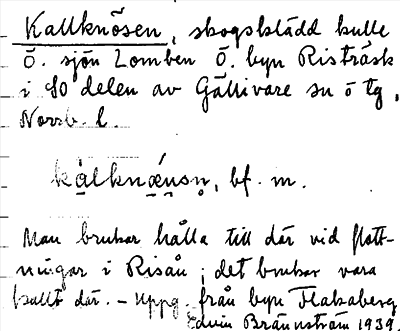 Kallknösen, skogsklädd kulle
Ö. sjön Lomben Ö. byn Risträsk
i SO delen av Gällivare sn o tg,
Norrb. l.
bf. m.
Man brukar hålla till där vid flott-
ningar i Risån; det brukar vara
kallt där. – Uppg. från byn Flakaberg
Edvin Brännström 1939.